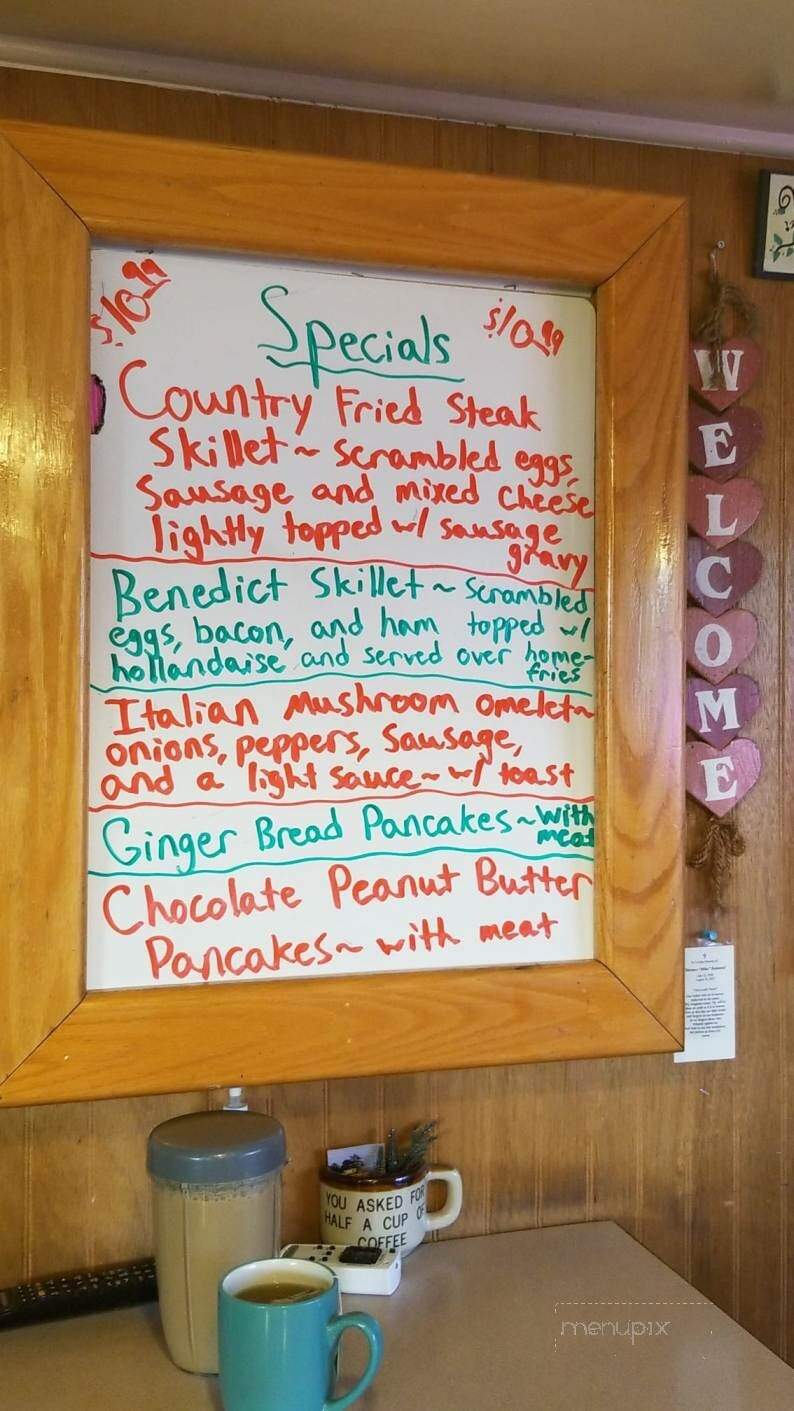 $10.99
Specials
$10.99
Country Fried Steak
Skillet ~ scrambled eggs,
Sausage and mixed cheese
lightly topped w/ sausage
gravy
Benedict Skillet ~ Scrambled
eggs, bacon, and ham topped w/
hollandaise and served over home-
fries
Italian Mushroom omelet~
onions, peppers, Sausage,
and a light sauce ~ w/ toast
Ginger Bread Pancakes ~ with
meat
Chocolate Peanut Butter
Pancakes ~ with meat
WELCOME
YOU ASKED FOR
HALF A CUP OF
COFFEE
menupix